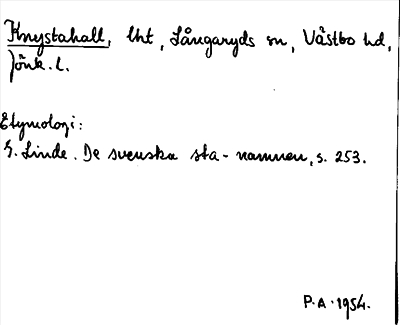 Knystahall, lht, Långaryds sn, Västbo hd,
Jönk. l.
Etymologi:
G. Linde. De svenska sta-namnen, s. 253.
P.A. 1954.